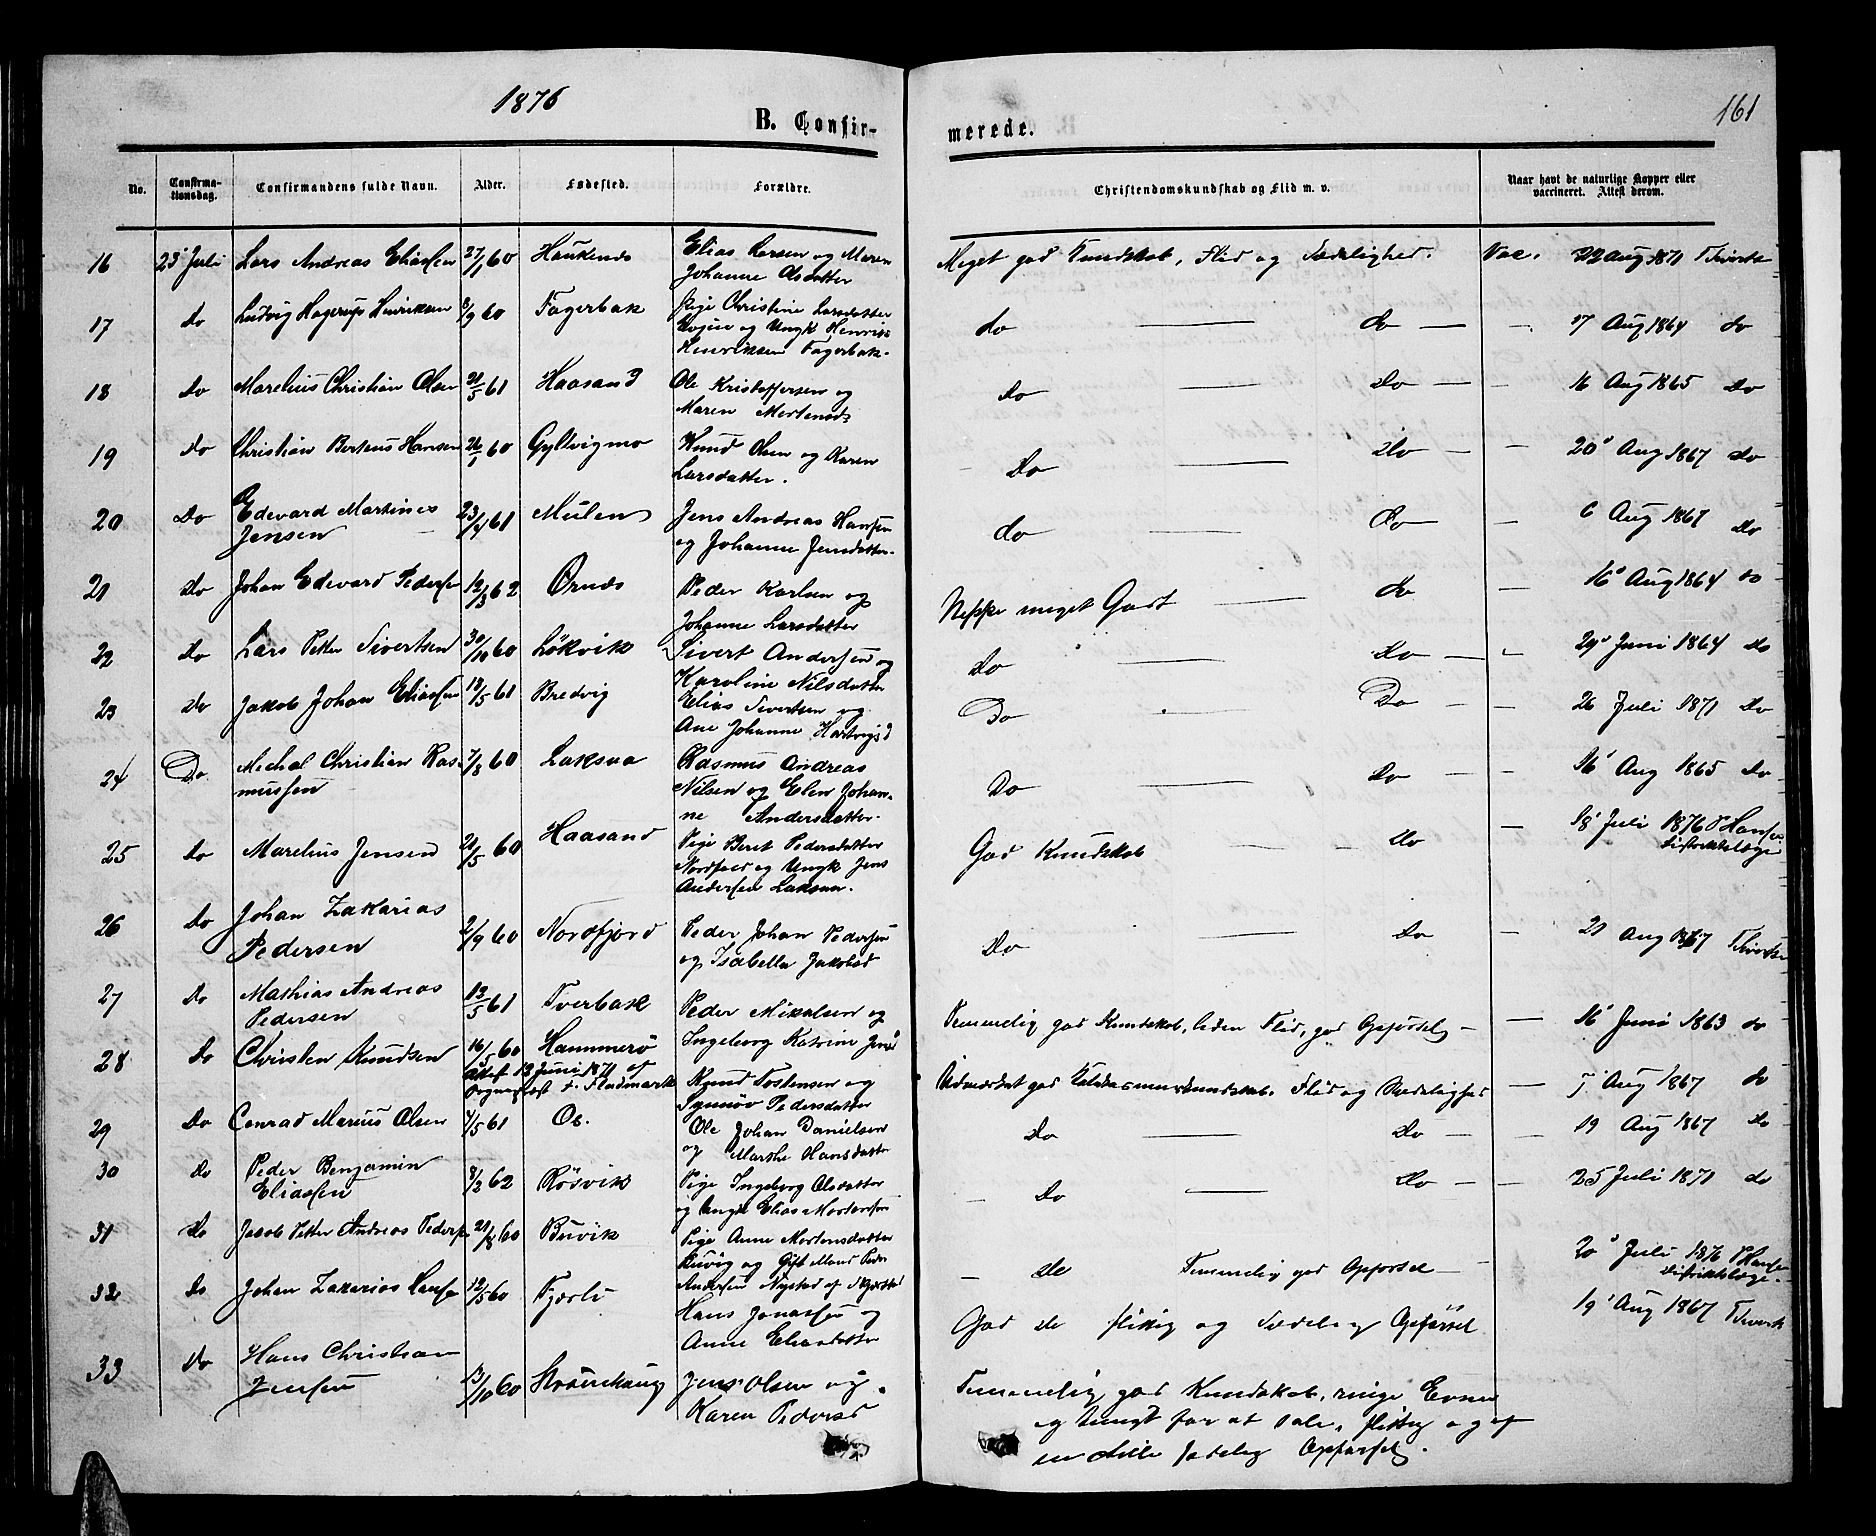 1876
161
B. Confir-
merede.
No.
Confirma-
tionsdag.
Confirmandens fulde Navn.
Alder.
Fødested.
Forældre.
Christendomskundskab og Flid m. v.
Naar havt de naturlige Kopper eller
vaccineret. Attest derom.
16 23' Juli Lars Andreas Eliassen 27/1 60 Haukenes Elias Larsen og Maren
Johanne Olsdatter
Meget god Kundskab, Flid og Sædelighed. Vac. 22 Aug 1871
17 Do Ludvig Hagerup Henriksen 8/9 60 Fagerbak Pige Christine Larsdatter
og Ungk Henrik
Henriksen Fagerbak.
do do 17 Aug 1864 do
18 Do Marelius Christian Olsen 21/5 61 Haasand Ole Kristoffersen og
Maren Mortensd.
Do Do 16 Aug 1865 Do
19 Do Christian Berteus Hansen 26/1 60 Gyltvigmo Knud Olsen og Karen
Larsdatter.
Do Do 20' Aug 1867 Do
20 Do Edevard Martines
Jensen 23/4 61 Mulen Jens Andreas Hansen
og Johanne Jensdatter.
do do 6 Aug 1867 Do
21 Do Johan Edevard Pedersen 12/3 62 Ørnes Peder Karlsen og
Johanne Larsdatter
Neppe meget Godt do 16' Aug 1864 do
22 Do Lars Petter Sivertsen 30/10 60 Løkvik Sivert Andersen og
Karoline Nilsdatter
Do Do 29' Juni 1864 Do
23 Do Jakob Johan Eliassen 18/5 61 Bredvig Elias Sivertsen og
Ane Johanne Hartvigsd
Do Do 26 Juli 1871 Do
24 Do Michal Christian Ras-
mussen 7/8 60 Laksaa Rasmus Andreas
Nilsen og Elen Johan-
ne Andersdatter.
Do Do 16' Aug 1865 Do
25 Do Marelius Jensen 21/5 60 Haasand Pige Beret Pedersdatter
og Ungk Jens
Andersen Laksaa.
God Kundskab Do 18' Juli 1876 Hansen
Distriktslæge
26 Do Johan Zakarias
Pedersen 2/9 60 Nordfjord Peder Johan Pedersen
og Isabella Jakobsd
Do Do 21 Aug 1867
27 Do Mathias Andreas
Pedersen 13/5 61 Tverbak Peder Mikalsen og
Ingeborg Katrine
Temmelig god Kundskab, liden Flid, god Opførsel 16' Juni 1863 do
28 Do Christen Knudsen 16/5 60 Hammerø
Attest 13 Juni 1871 af
Knud Tostensen og
Synnøv Pedersdatter
god Kundskab. Flid og Sædelighed Aug 1867 do
29 Do Conrad Marius Olsen 4/5 61 Ole Johan Danielsen
og Marthe Hansdatter
Do Do 19 Aug 1867 Do
30 Do Peder Benjamin
Eliassen 8/2 62 Røsvik Pige Ingeborg Olsdatter
og Ungk Elias Mortensen
Do Do 25 Juli 1871 do
31 Do Jacob Petter Andreas Pedersen 21/8 60 Buvik Pige Anne Mortensdatter
Buvig og Gift Mand Peder
Andersen Nystad af Skjerstad
do Temmelig god Opførsel 20' Juli 1876 Hansen
Distriktslæge
32 Do Johan Zakarias Hansen 12/5 60 Fjærli Hans Jonassen og
Anne Eliasdatter
God do flittig og Sædelig Opførsel 19' Aug 1867
33 Do Hans Christian
Jensen 13/10 60 Jens Olsen og
Karen Pedersd
Temmelig god Kundskab, ringe Evner
og tungt for at tale, flittig og af
en stille sædelig Opførsel.